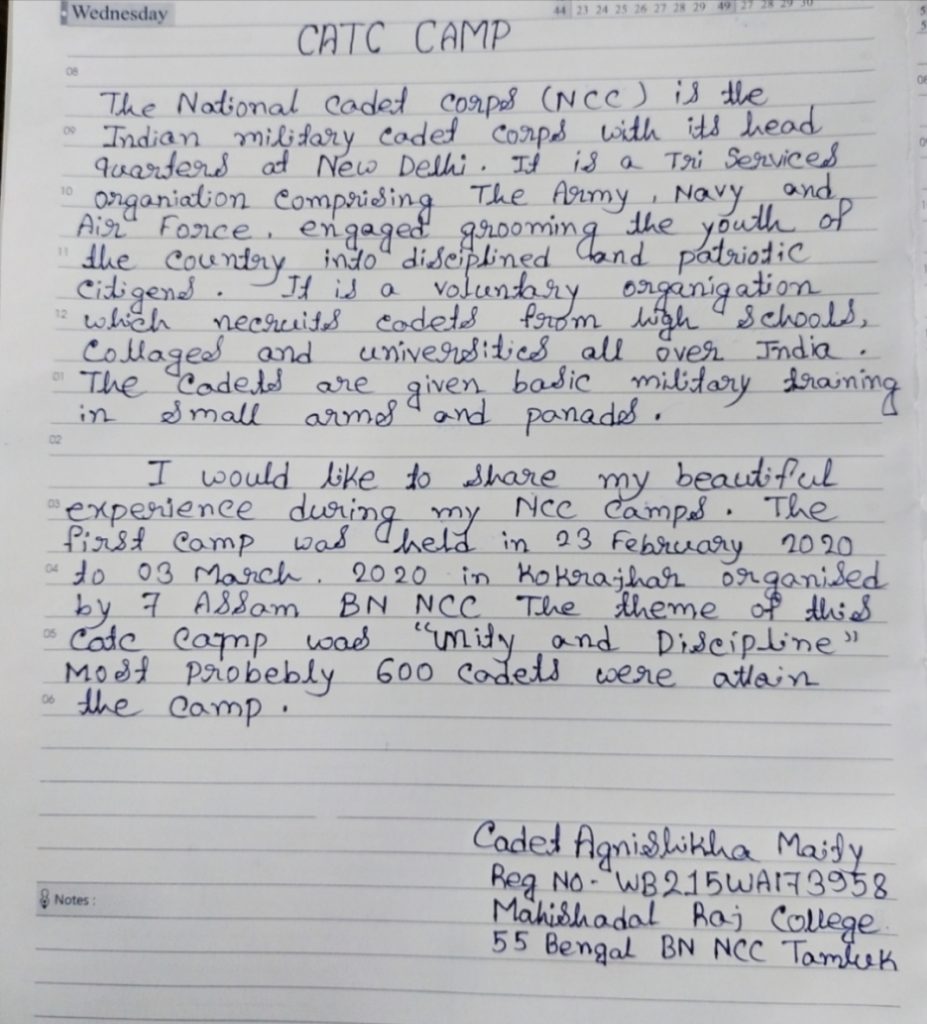 Wednesday
44 23 24 25 26 27 28 29 49 27 28 29 30
CATC CAMP
08
The National cadet corps (NCC) is the
09 Indian military cadet corps with its head
quarters at New Delhi. It is a Tri Services
10 organiation comprising The Army, Navy and
Air Force, engaged grooming the youth of
11 the country into disciplined and patriotic
citigens. It is a voluntary organigation
12 which necruits cadets from high schools,
Collages and universities all over India.
01 The Cadets are given basic military training
in small arms and panads.
02
I would like to share my beautiful
03 experience during my NCC Camps. The
first camp was held in 23 February 2020
04 to 03 March. 2020 in Kokrajhar organised
by 7 Assam BN NCC The theme of this
05 Catc Camp was "Unity and Discipline"
Most Probebly 600 Cadets were attain
06 the camp.
Cadet Agnishikha Maity
Reg No- WB21SWA173958
Mahishadal Raj College
55 Bengal BN NCC Tamluk
Notes :